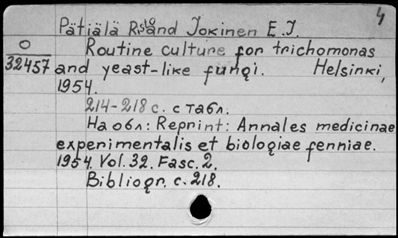 4
Pätiälä R. and Jokinen E.J.
O
32457
Routine culture for trichomonas
and yeast-like fungi. Helsinki,
1954.
214-218 c. с табл.
На обл: Reprint: Annales medicinae
experimentalis et biologiae fenniae.
1954. Vol. 32. Fasc. 2.
Bibliogr. c. 218.